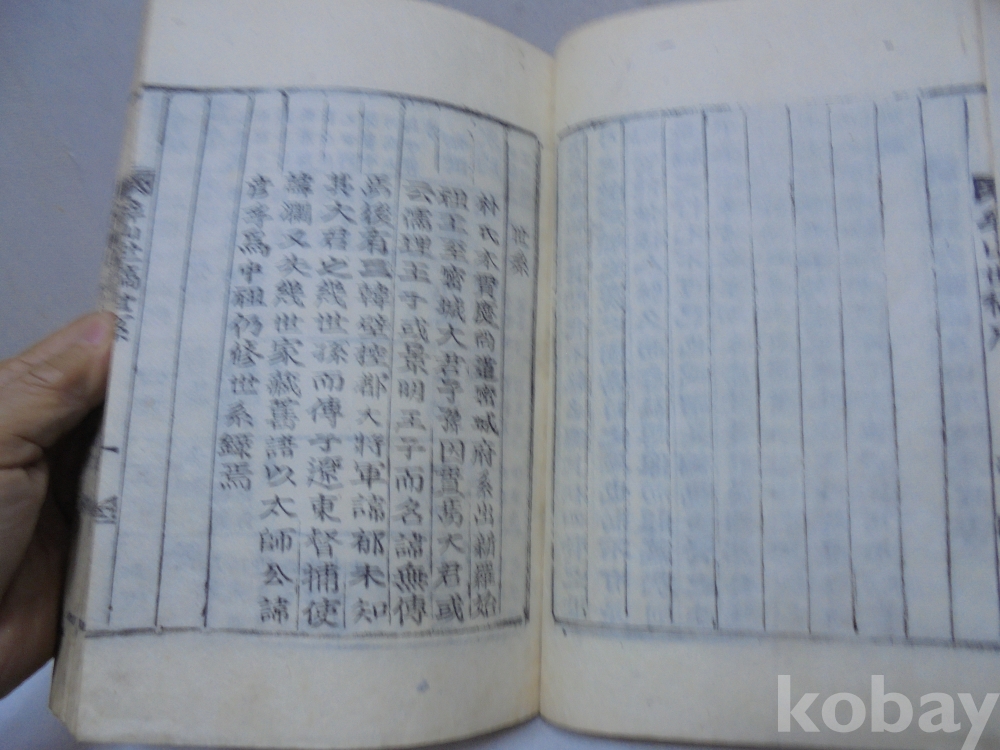 世系
朴氏本貫慶尚道密城府系出新羅始
祖王至密城大君子孫因貫焉大君或
云儒理王子或景明王子而名諱無傳
焉後有三韓壁控都大將軍諱郁未知
其大君之幾世孫而傳子遼東督捕使
諱瀾又次幾世家藏舊譜以太師公諱
彦孚爲中祖仍修世系錄焉
世系
一
kobay